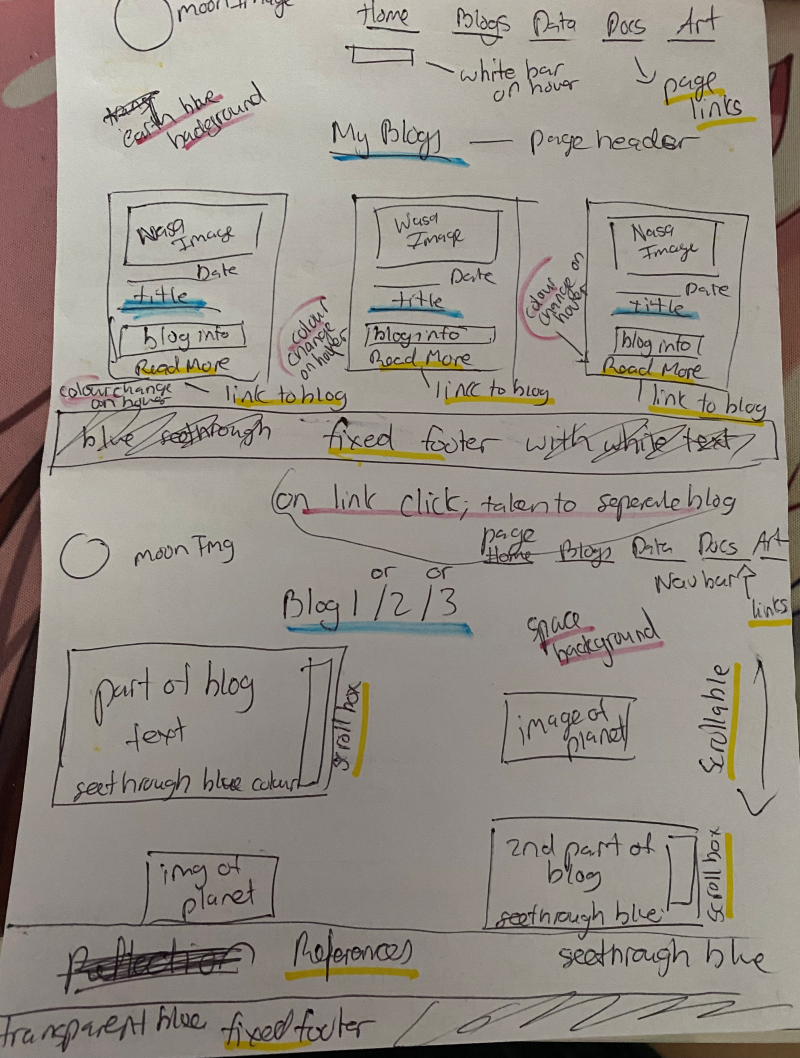 moonImage
Home Blogs Data Docs Art
white bar
on hover
page
links
earth blue
background
My Blogs — page header
Nasa
Image
Date
title
blog info
Read More
colour change
on hover
link to blog
Nasa
Image
Date
title
blog info
Read More
colour
change
on hover
link to blog
Nasa
Image
Date
title
blog info
Read More
colour
change on
hover
link to blog
blue seethrough fixed footer with white text
on link click; taken to seperate blog
moon Img
page
Home Blogs Data Docs Art
Nav bar
links
or or
Blog 1 / 2 / 3
space
background
part of blog
text
seethrough blue colour
scroll box
image of
planet
Scrollable
img of
planet
2nd part of
blog
seethrough blue
scroll box
Reflection References seethrough blue
transparent blue fixed footer